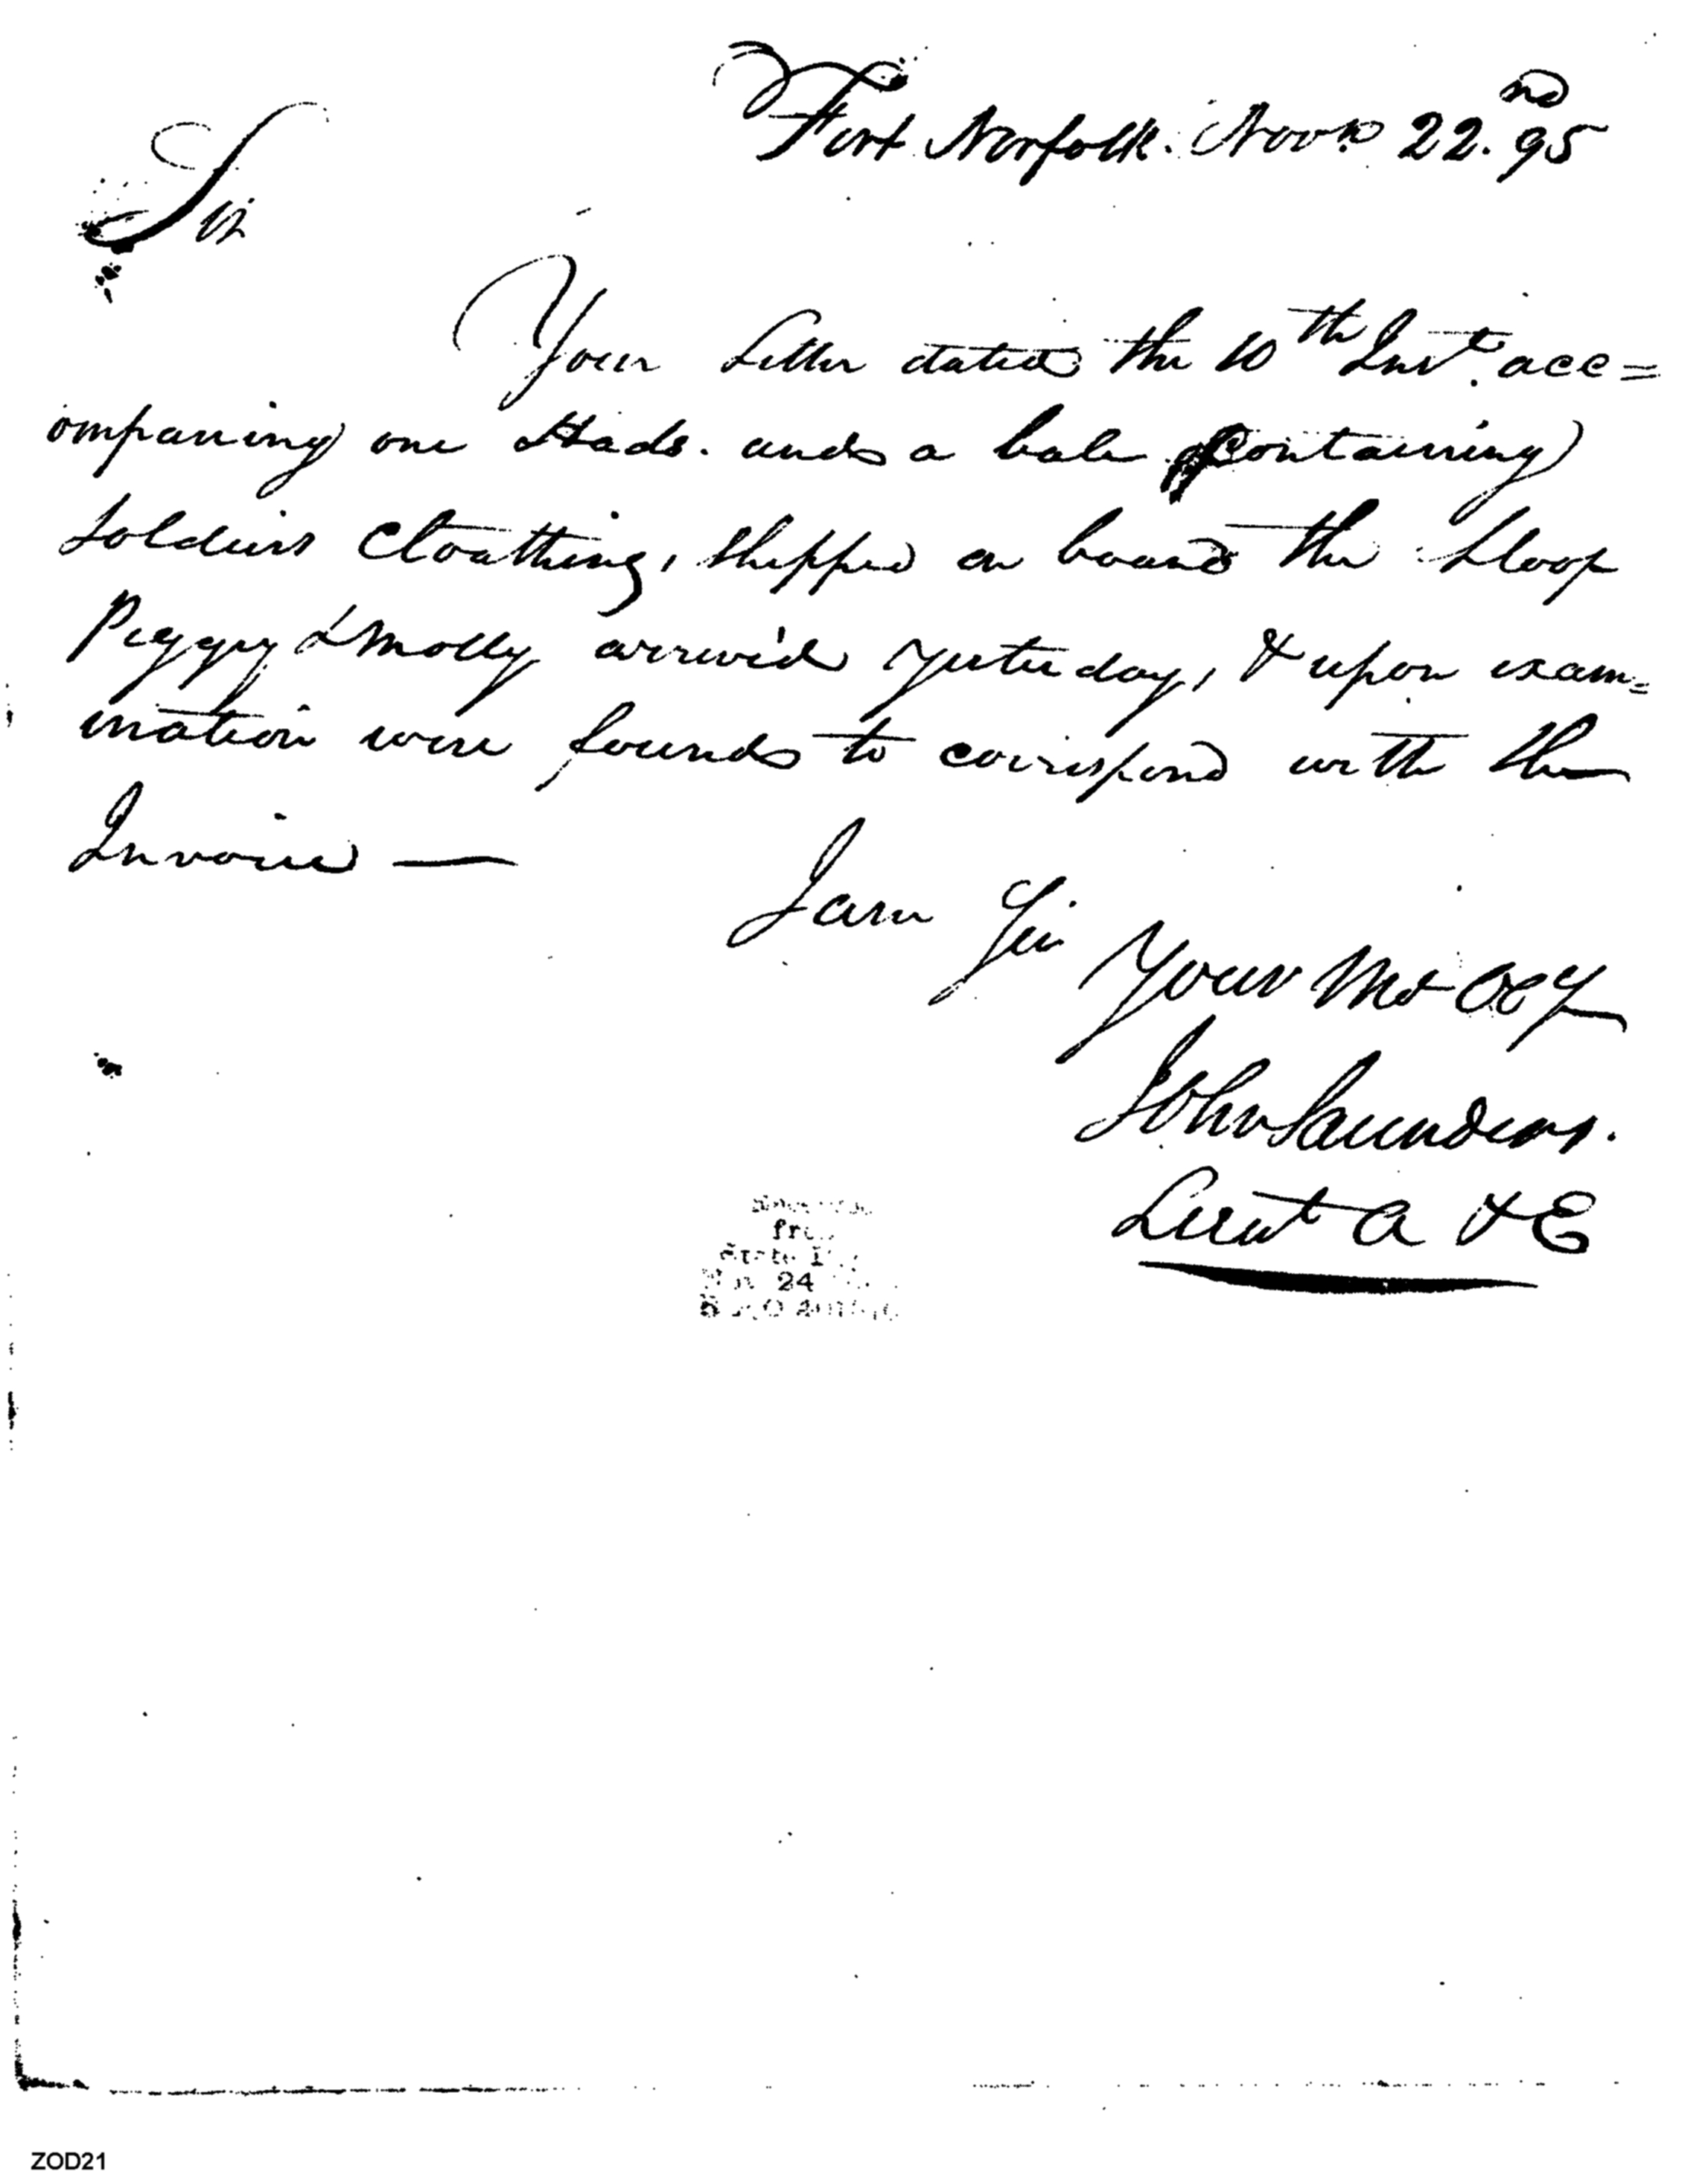 Fort Norfolk. Novr. 22.nd 95
Sir
Your Letter dated the 10th Inst. acc=
ompaning one Hhds. and a bale containing
Soldiers Cloathing, Shipped on board the Sloop
Peggy & Molly arrived yesterday, & upon exam=
ination were found to correspond with the
Invoice —
I am Sir
Your Mo Ob
John Saunders.
Lieut A & E
24
ZOD21